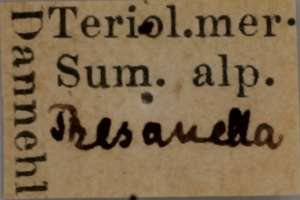 Teriol.mer.
Sum. alp.
Presanella
Dannehl